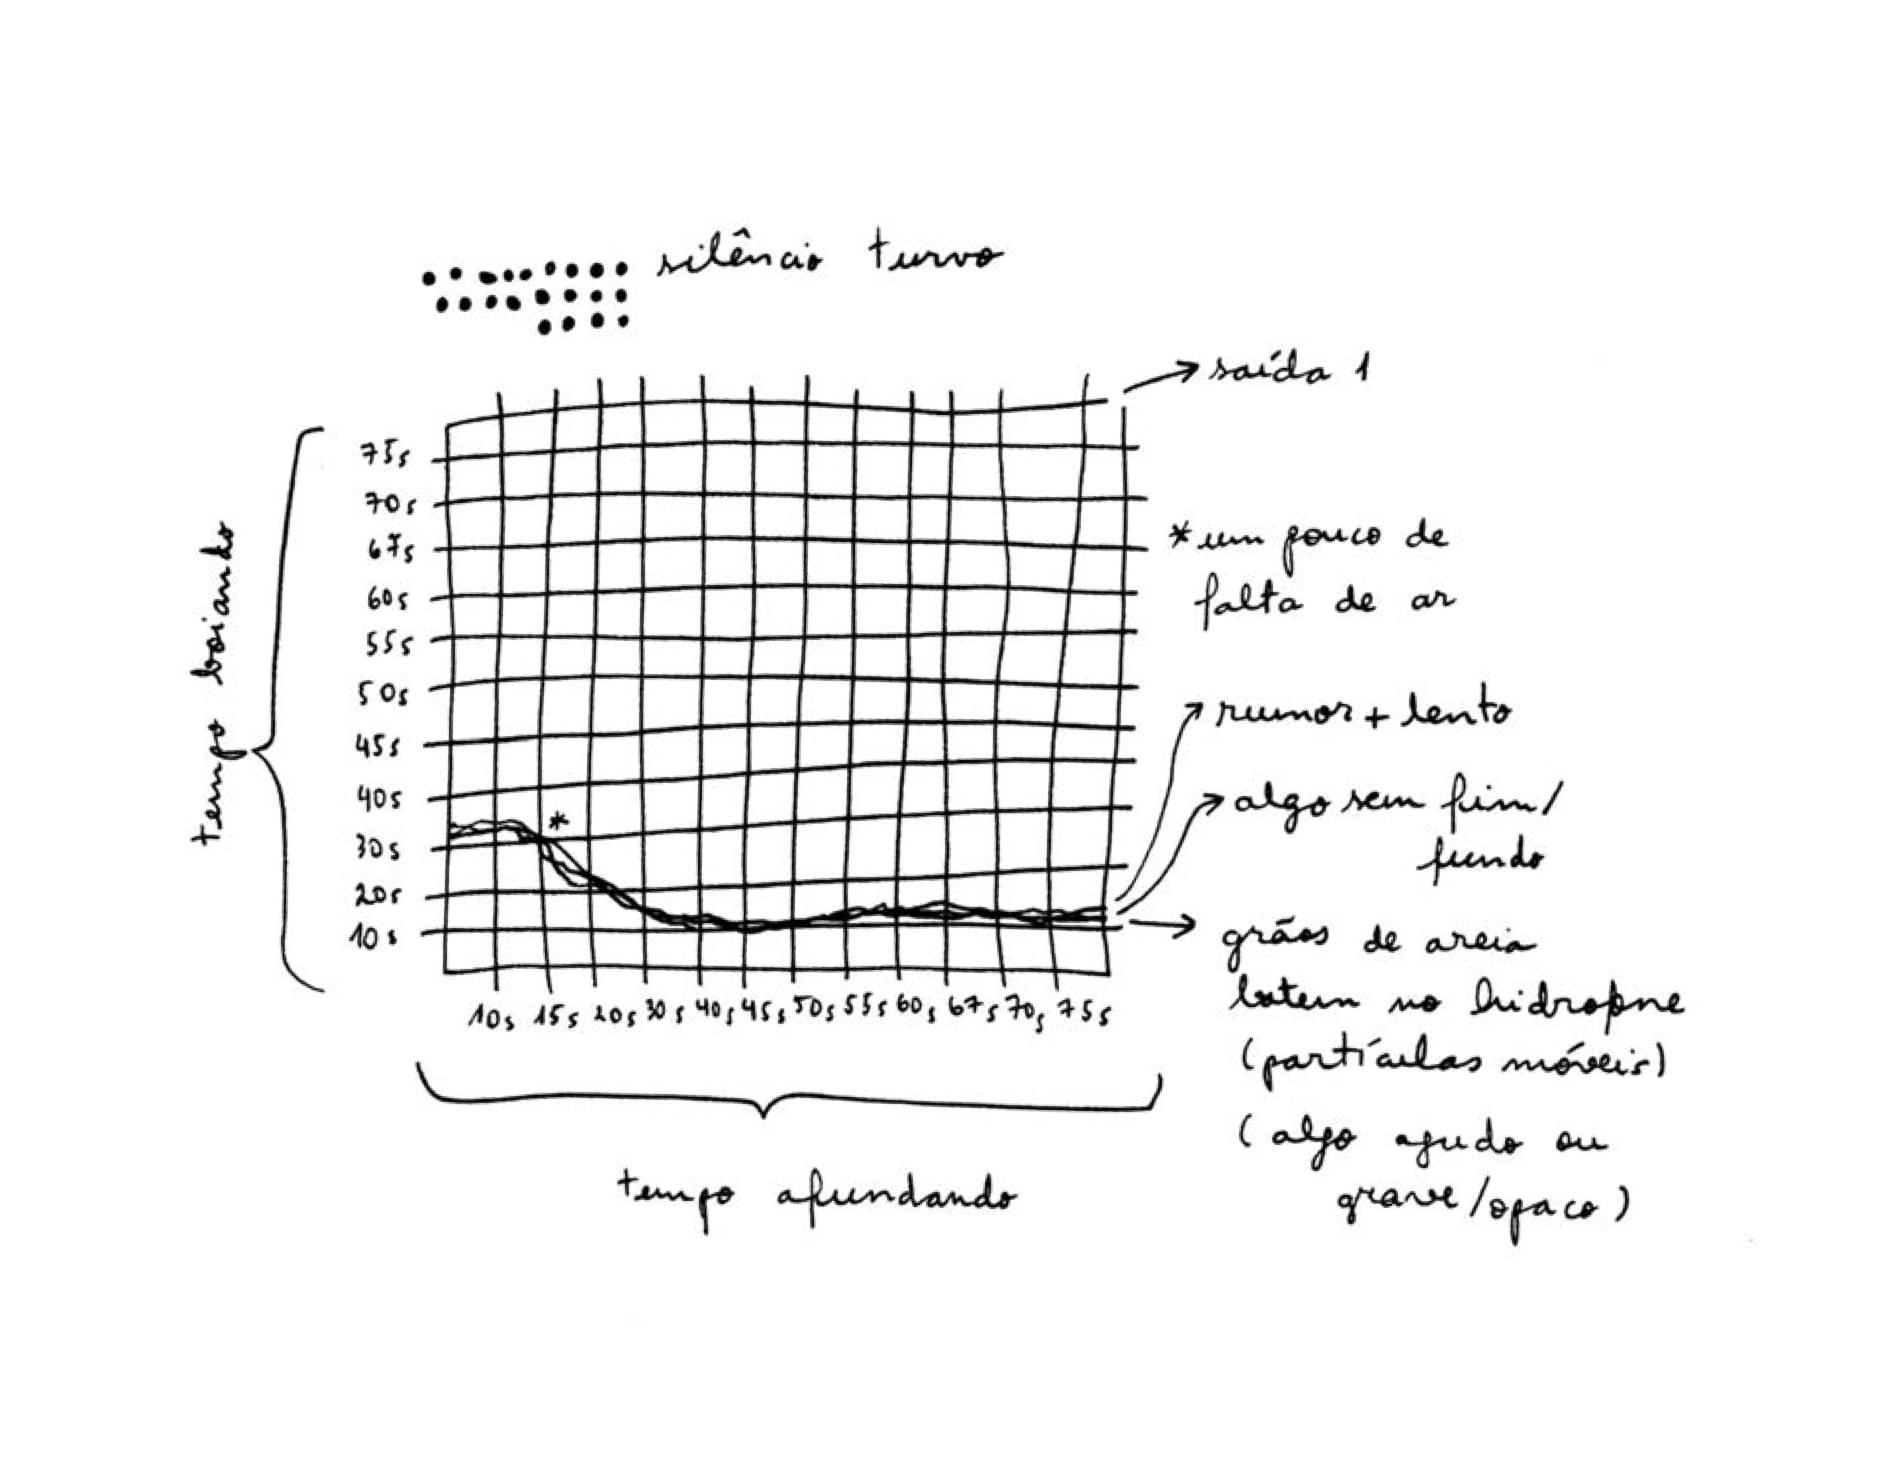 silêncio turvo
saída 1
tempo boiando
75s
70s
67s
60s
55s
50s
45s
40s
30s
20s
10s
*um pouco de
falta de ar
*
rumor + lento
algo sem fim/
fundo
grãos de areia
batem no hidrofone
(partículas móveis)
(algo agudo ou
grave/opaco)
10s 15s 20s 30s 40s 45s 50s 55s 60s 67s 70s 75s
tempo afundando